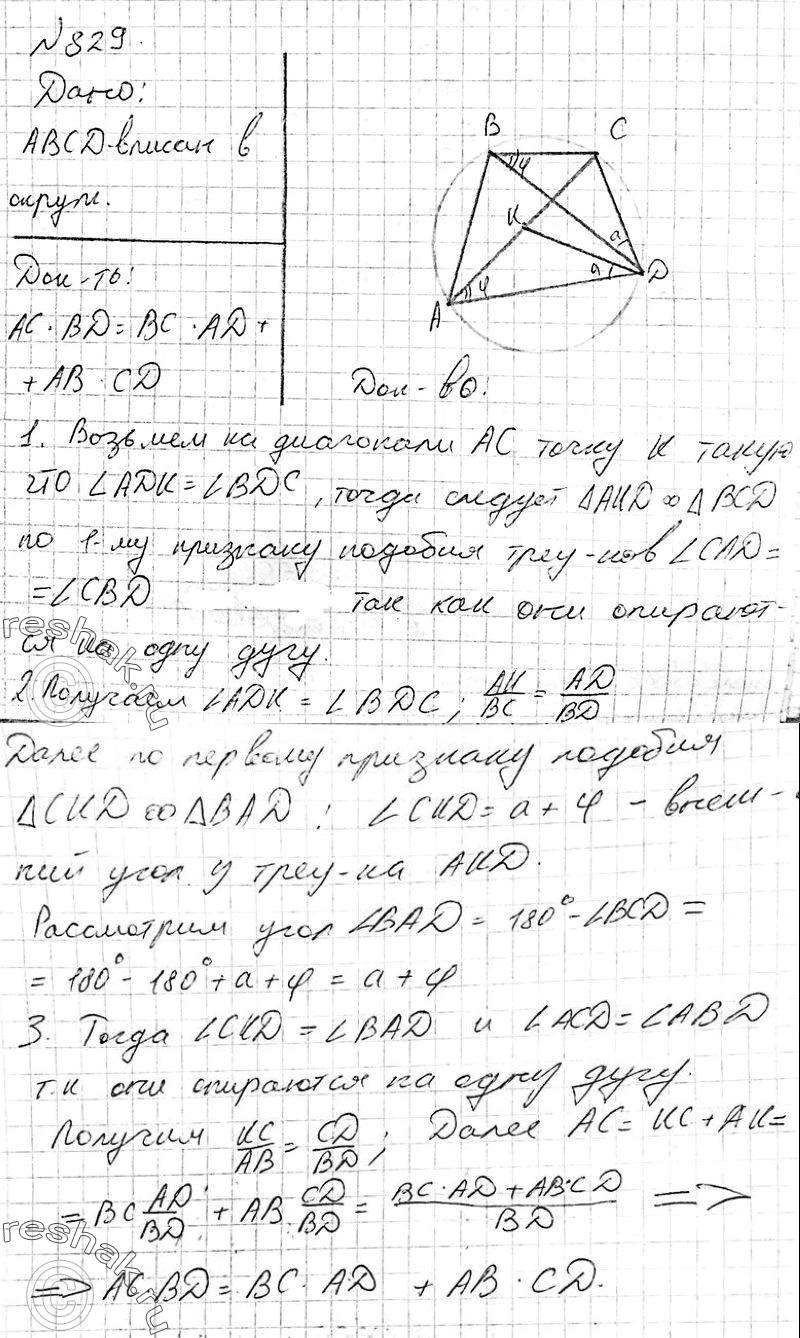 N 829.
Дано:
ABCD-вписан в
окруж.
Док-ть:
AC · BD = BC · AD +
+ AB · CD
B
C
φ
K
a
a
D
A
φ
Док-во:
1. Возьмем на диагонали AC точку K такую
что ∠ADK = ∠BDC, тогда следует △AKD ∞ △BCD
по 1-му признаку подобия треу-ков ∠CAD =
= ∠CBD так как они опирают-
ся на одну дугу.
2. Получаем ∠ADK = ∠BDC; AK/BC = AD/BD
Далее по первому признаку подобия
△CKD ∞ △BAD; ∠CKD = a + φ - внеш-
ний угол у треу-ка AKD.
Рассмотрим угол ∠BAD = 180° - ∠BCD =
= 180° - 180° + a + φ = a + φ
3. Тогда ∠CKD = ∠BAD и ∠ACD = ∠ABD
т.к они опираются на одну дугу.
Получим KC/AB = CD/BD; Далее AC = KC + AK =
= BC AD/BD + AB CD/BD = (BC · AD + AB · CD)/BD =>
=> AC · BD = BC · AD + AB · CD.
reshak.ru
reshak.ru
reshak.ru